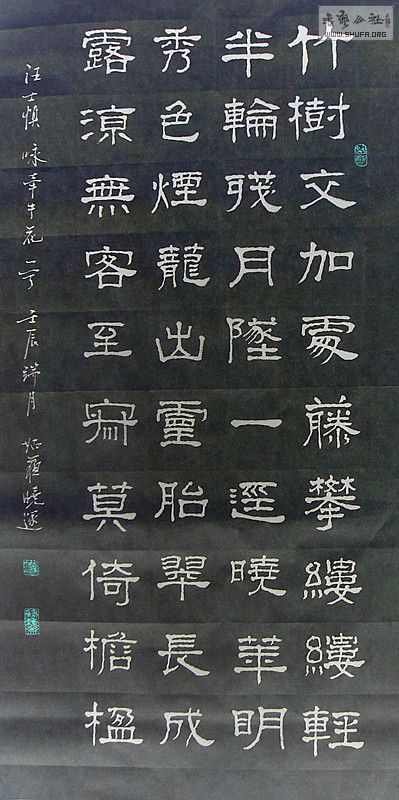 竹樹交加處藤攀縷縷輕
半輪殘月墜一逕曉華明
秀色煙蘢出靈胎翠長成
露涼無客至寂莫倚檐楹
汪士慎 詠牽牛花一首 壬辰端月
書藝公社
WWW.SHUFA.ORG